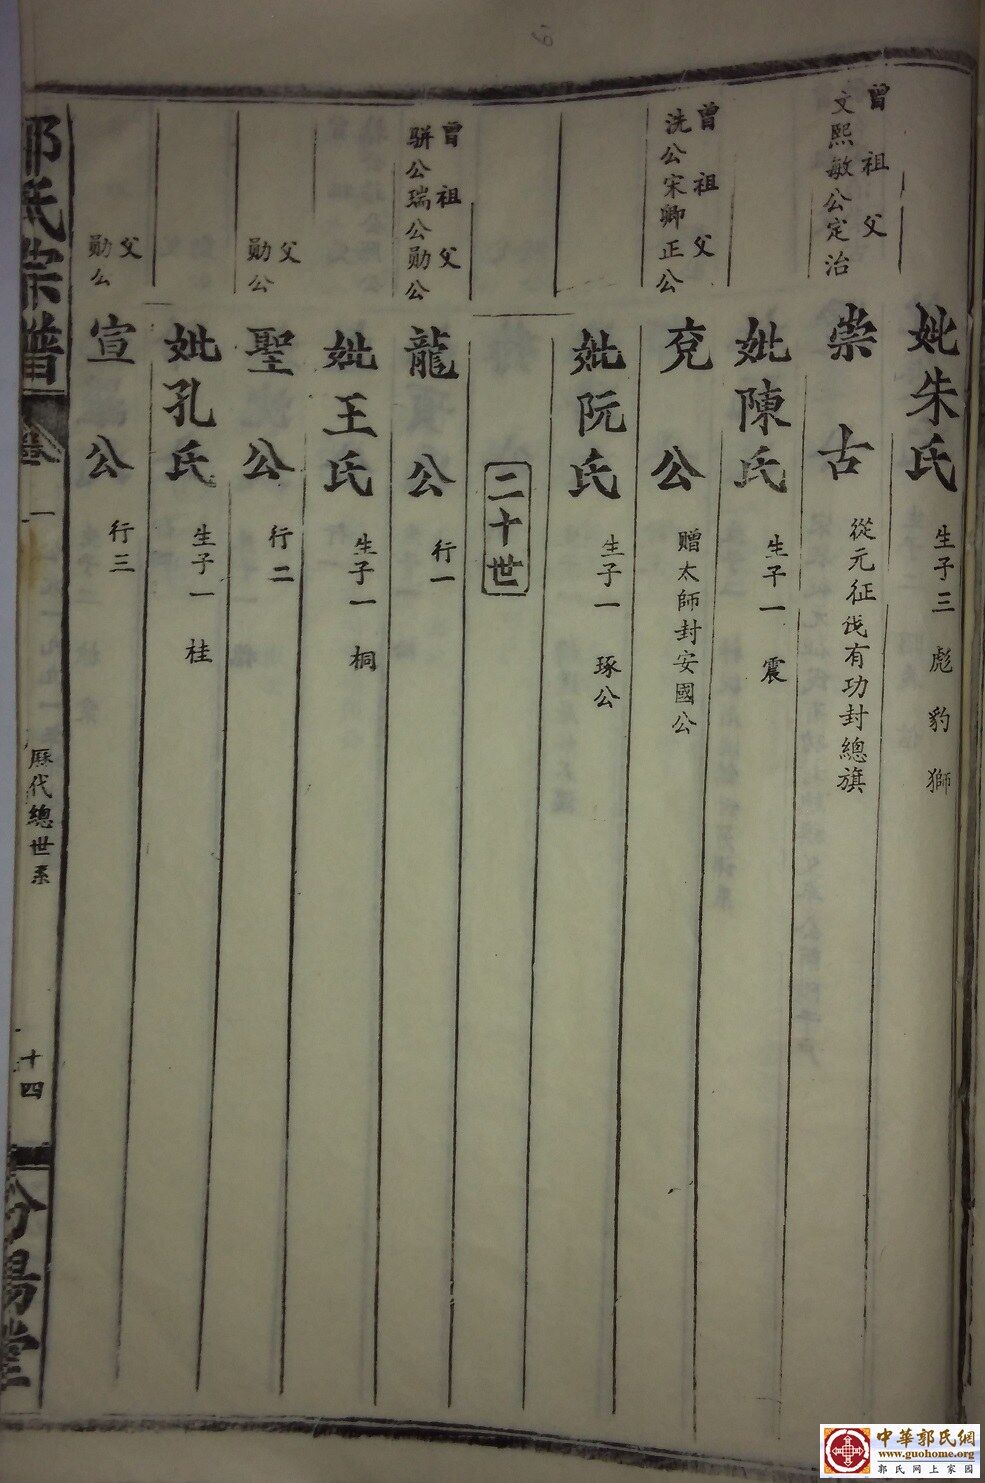 妣朱氏 生子三 彪 豹 獅
曾祖父 文熙敏公定治
崇古 從元征伐有功封總旗
妣陳氏 生子一 震
曾祖父 洗公宋卿正公
兗公 贈太師封安國公
妣阮氏 生子一 琢公
二十世
曾祖父 駢公瑞公勛公
龍公 行一
妣王氏 生子一 桐
父 勛公
聖公 行二
妣孔氏 生子一 桂
父 勛公
宣公 行三
郭氏宗譜
卷一
歷代總世系
十四
汾陽堂
中華郭氏網
www.guohome.org
郭氏网上家园